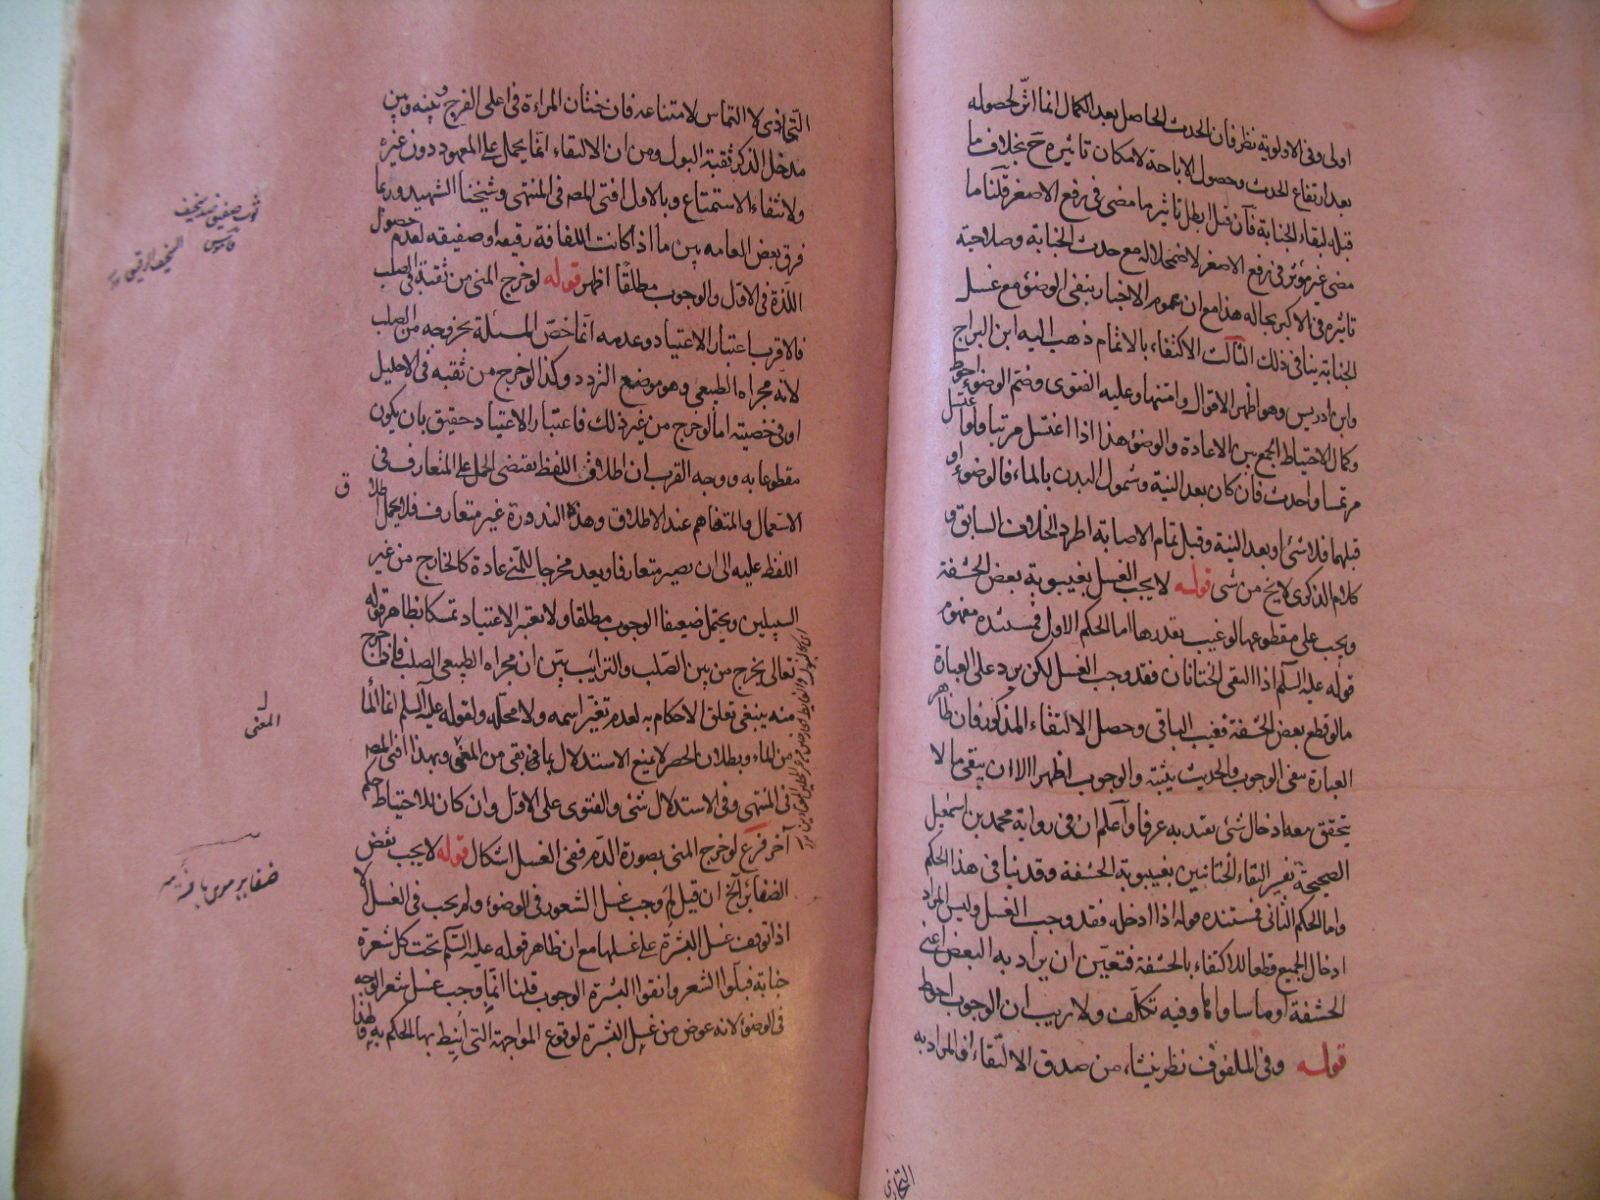 اولى وفى الاولوية نظر فان الحدث الحاصل بعد الكمال انما اثر لحصوله
بعد ارتفاع الحدث وحصول الاباحة لامكان تاثيره ح بخلاف ما
قبله لبقاء الجنابة فان قيل ابطل تاثير ما مضى فى رفع الاصغر قلنا ما
مضى غير مؤثر فى رفع الاصغر لاضمحلاله مع حدث الجنابة وصلاحية
تاثيره فى الاكبر بحاله هذا مع ان عموم الاخبار بنفى الوضوء مع غسل
الجنابة ينافى ذلك الثالث الاكتفاء بالاتمام ذهب اليه ابن البراج
وابن ادريس وهو اظهر الاقوال وامتنها وعليه الفتوى وضم الوضوء احوط
وكمال الاحتياط الجمع بين الاعادة والوضوء هذا اذا اغتسل مرتبا ولو اغتسل
مرتمسا واحدث فان كان بعد النية وشمول البدن بالماء فالوضوء او
قبلهما فلا شئ او بعد النية وقبل تمام الاصابة اطرد الخلاف السابق و
كلام الذكرى لا يخ من شئ قوله لا يجب الغسل بغيبوبة بعض الحشفة
ويجب على مقطوعها لو غيب بقدرها اما الحكم الاول فمستنده مفهوم
قوله عليه السلم اذا التقى الختانان فقد وجب الغسل لكن يرد على العبارة
ما لو قطع بعض الحشفة فغيب الباقى وحصل الالتقاء المذكور فان ظاهر
العبارة ينفى الوجوب والحديث يثبته والوجوب اظهر الا ان يبقى ما لا
يتحقق معه ادخال شئ يعتد به عرفا واعلم ان فى رواية محمد بن اسمعيل
الصحيحة تفسير التقاء الختانين بغيبوبة الحشفة وقد ينافى هذا الحكم
واما الحكم الثانى فمستنده قوله اذا ادخله فقد وجب الغسل وليس المراد
ادخال الجميع قطعا للاكتفاء بالحشفة فتعين ان يراد به البعض اعنى
الحشفة او ما ساواها وفيه تكلف ولا ريب ان الوجوب احوط
قوله وفى الملفوف نظر ينشاء من صدق الالتقاء اذ المراد به
التحاذى
التحاذى لا التماس لامتناعه فان ختان المراءة فى اعلى الفرج وبينه وبين
مدخل الذكر ثقبة البول ومن ان الالتقاء انما يحمل على المعهود دون غيره
ولانتفاء الاستمتاع وبالاول افتى المصـ فى المنتهى وشيخنا الشهيد وربما
فرق بعض العامه بين ما اذا كانت اللفافة رقيقه او صفيقه لعدم حصول
اللذة فى الاول والوجوب مطلقا اظهر قوله لو خرج المنى من ثقبة فى الصلب
فالاقرب اعتبار الاعتياد وعدمه انما خص المسئلة بخروجه من الصلب
لانه مجراه الطبيعى وهو موضع التردد وكذا لو خرج من ثقبه فى الاحليل
او فى خصيته اما لو خرج من غير ذلك فاعتبار الاعتياد حقيق بان يكون
مقطوعا به ووجه القرب ان اطلاق اللفظ يقتضى الحمل على المتعارف فى
الاستعمال والمتفاهم عند الاطلاق وهذه الندورة غير متعارف فلا يحمل اطلاق
اللفظ عليه الى ان يصير متعارفا ويعد مخرجا للمنى عادة كالخارج من غير
السبيلين ويحتمل ضعيفا الوجوب مطلقا ولا يعتبر الاعتياد تمسكا بظاهر قوله
تعالى يخرج من بين الصلب والترايب بين ان مجراه الطبيعى الصلب فاذا خرج
منه ينبغى تعلق الاحكام به لعدم تغير اسمه ولا محله ولقوله عليه السلم انما الما
من الماء وبطلان الحصر لا يمنع الاستدلال بما فى بقى من المعنى وبهذا افتى المصـ
فى المنتهى وفى الاستدلال شئ والفتوى على الاول وان كان للاحتياط حكم
آخر فرع لو خرج المنى بصورة الدم ففى الغسل اشكال قوله لا يجب نقض
الضفاير الخ ان قيل لم وجب غسل الشعور فى الوضوء ولم يجب فى الغسل الا
اذا توقف غسل البشرة على غسلها مع ان ظاهر قوله عليه السلم تحت كل شعرة
جنابة فبلوا الشعر وانقوا البشرة الوجوب قلنا انما وجب غسل شعر الوجه
فى الوضوء لانه عوض من غسل البشرة لوقوع المواجهة التى انيط بها الحكم به ولهذا
ثوب صفيق ضد سخيف
قاموس
ق
المعنى